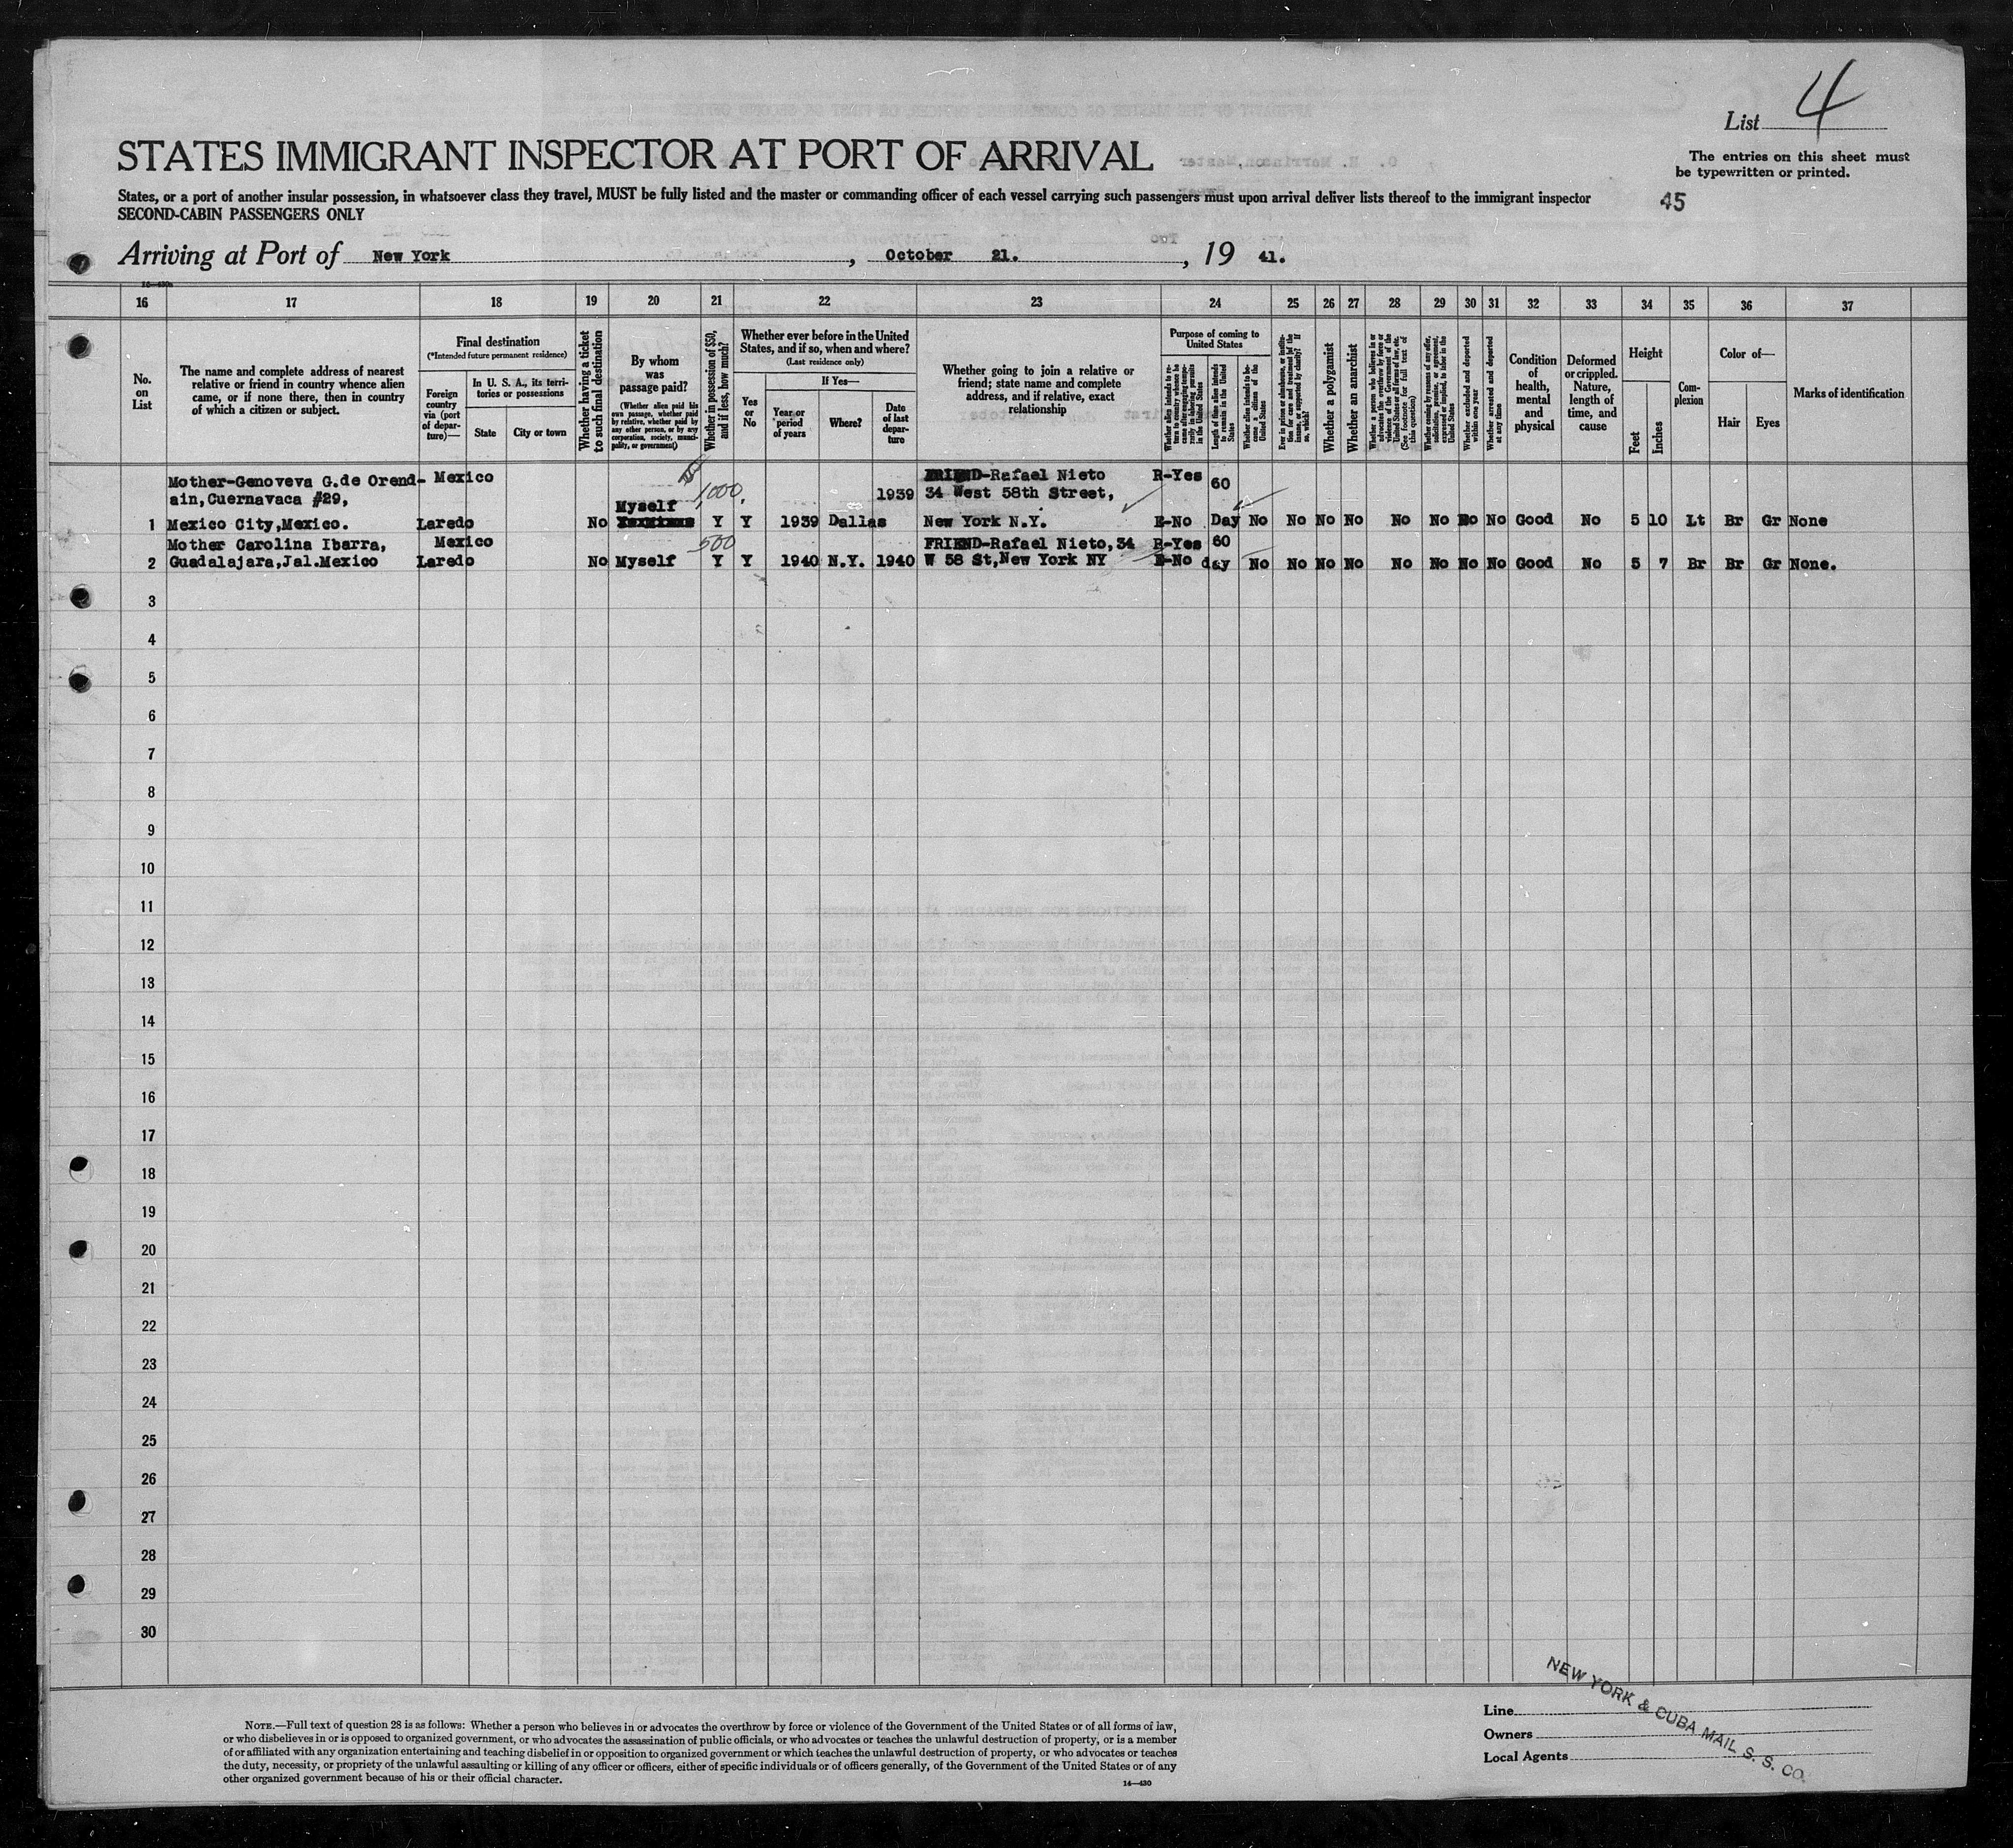 List 4
STATES IMMIGRANT INSPECTOR AT PORT OF ARRIVAL
The entries on this sheet must
be typewritten or printed.
States, or a port of another insular possession, in whatsoever class they travel, MUST be fully listed and the master or commanding officer of each vessel carrying such passengers must upon arrival deliver lists thereof to the immigrant inspector
45
SECOND-CABIN PASSENGERS ONLY
Arriving at Port of New York, October 21., 19 41.
16 17 18 19 20 21 22 23 24 25 26 27 28 29 30 31 32 33 34 35 36 37
No.
on
List
The name and complete address of nearest
relative or friend in country whence alien
came, or if none there, then in country
of which a citizen or subject.
Final destination
(*Intended future permanent residence)
Foreign
country
via (port
of depar-
ture)—
In U. S. A., its terri-
tories or possessions
State
City or town
Whether having a ticket
to such final destination
By whom
was
passage paid?
(Whether alien paid his
own passage, whether paid
by relative, whether paid by
any other person, or by any
corporation, society, munici-
pality, or government)
Whether in possession of $50,
and if less, how much?
Whether ever before in the United
States, and if so, when and where?
(Last residence only)
Yes
or
No
If Yes—
Year or
period
of years
Where?
Date
of last
depar-
ture
Whether going to join a relative or
friend; state name and complete
address, and if relative, exact
relationship
Purpose of coming to
United States
Length of time alien intends
to remain in the United
States
Whether alien intends to be-
come a citizen of the
United States
Whether a polygamist
Whether an anarchist
Whether excluded and deported
within one year
Whether arrested and deported
at any time
Condition
of
health,
mental
and
physical
Deformed
or crippled.
Nature,
length of
time, and
cause
Height
Feet
Inches
Com-
plexion
Color of—
Hair
Eyes
Marks of identification
Mother-Genoveva G.de Orend- Mexico 1000. FRIEND-Rafael Nieto R-Yes 60
ain,Cuernavaca #29, Myself 1939 34 West 58th Street,
1 Mexico City,Mexico. Laredo No Y Y 1939 Dallas New York N.Y. E-No Day No No No No No No No No Good No 5 10 Lt Br Gr None
Mother Carolina Ibarra, Mexico 500 FRIEND-Rafael Nieto,34 R-Yes 60
2 Guadalajara,Jal.Mexico Laredo No Myself Y Y 1940 N.Y. 1940 W 58 St,New York NY E-No day No No No No No No No No Good No 5 7 Br Br Gr None.
3
4
5
6
7
8
9
10
11
12
13
14
15
16
17
18
19
20
21
22
23
24
25
26
27
28
29
30
NOTE.—Full text of question 28 is as follows: Whether a person who believes in or advocates the overthrow by force or violence of the Government of the United States or of all forms of law,
or who disbelieves in or is opposed to organized government, or who advocates the assassination of public officials, or who advocates or teaches the unlawful destruction of property, or is a member
of or affiliated with any organization entertaining and teaching disbelief in or opposition to organized government or which teaches the unlawful destruction of property, or who advocates or teaches
the duty, necessity, or propriety of the unlawful assaulting or killing of any officer or officers, either of specific individuals or of officers generally, of the Government of the United States or of any
other organized government because of his or their official character.
14—430
Line
Owners
Local Agents
NEW YORK & CUBA MAIL S. S. CO.